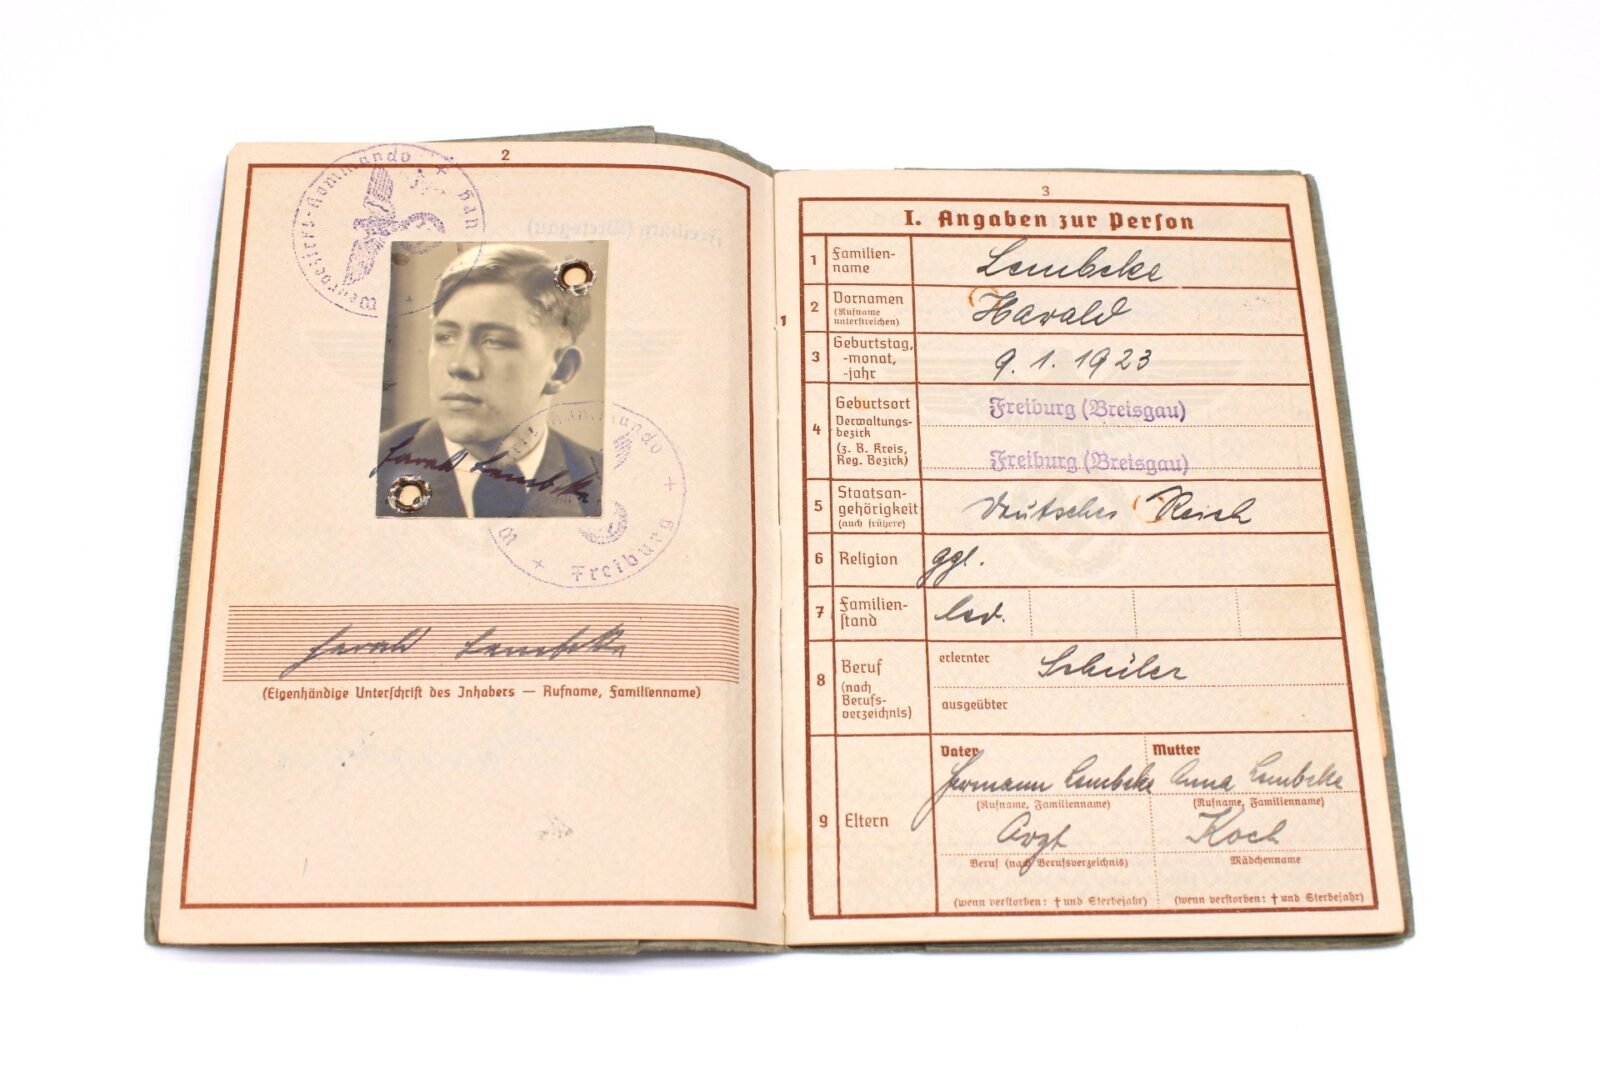 2
Wehrbezirks-Kommando
Freiburg
Harald Lembcke
Harald Lembcke
(Eigenhändige Unterschrift des Inhabers — Rufname, Familienname)
3
I. Angaben zur Person
1
1 Familien-name Lembcke
2 Vornamen (Rufname unterstreichen) Harald
3 Geburtstag, -monat, -jahr 9. 1. 1923
4 Geburtsort Freiburg (Breisgau)
Verwaltungs-bezirk (z. B. Kreis, Reg. Bezirk) Freiburg (Breisgau)
5 Staatsan-gehörigkeit (auch frühere) Deutsches Reich
6 Religion ggl.
7 Familien-stand led.
8 Beruf (nach Berufs-verzeichnis) erlernter Schüler
ausgeübter
9 Eltern
Vater Mutter
Hermann Lembcke Anna Lembcke
(Rufname, Familienname) (Rufname, Familienname)
Arzt Koch
Beruf (nach Berufsverzeichnis) Mädchenname
(wenn verstorben: † und Sterbejahr) (wenn verstorben: † und Sterbejahr)